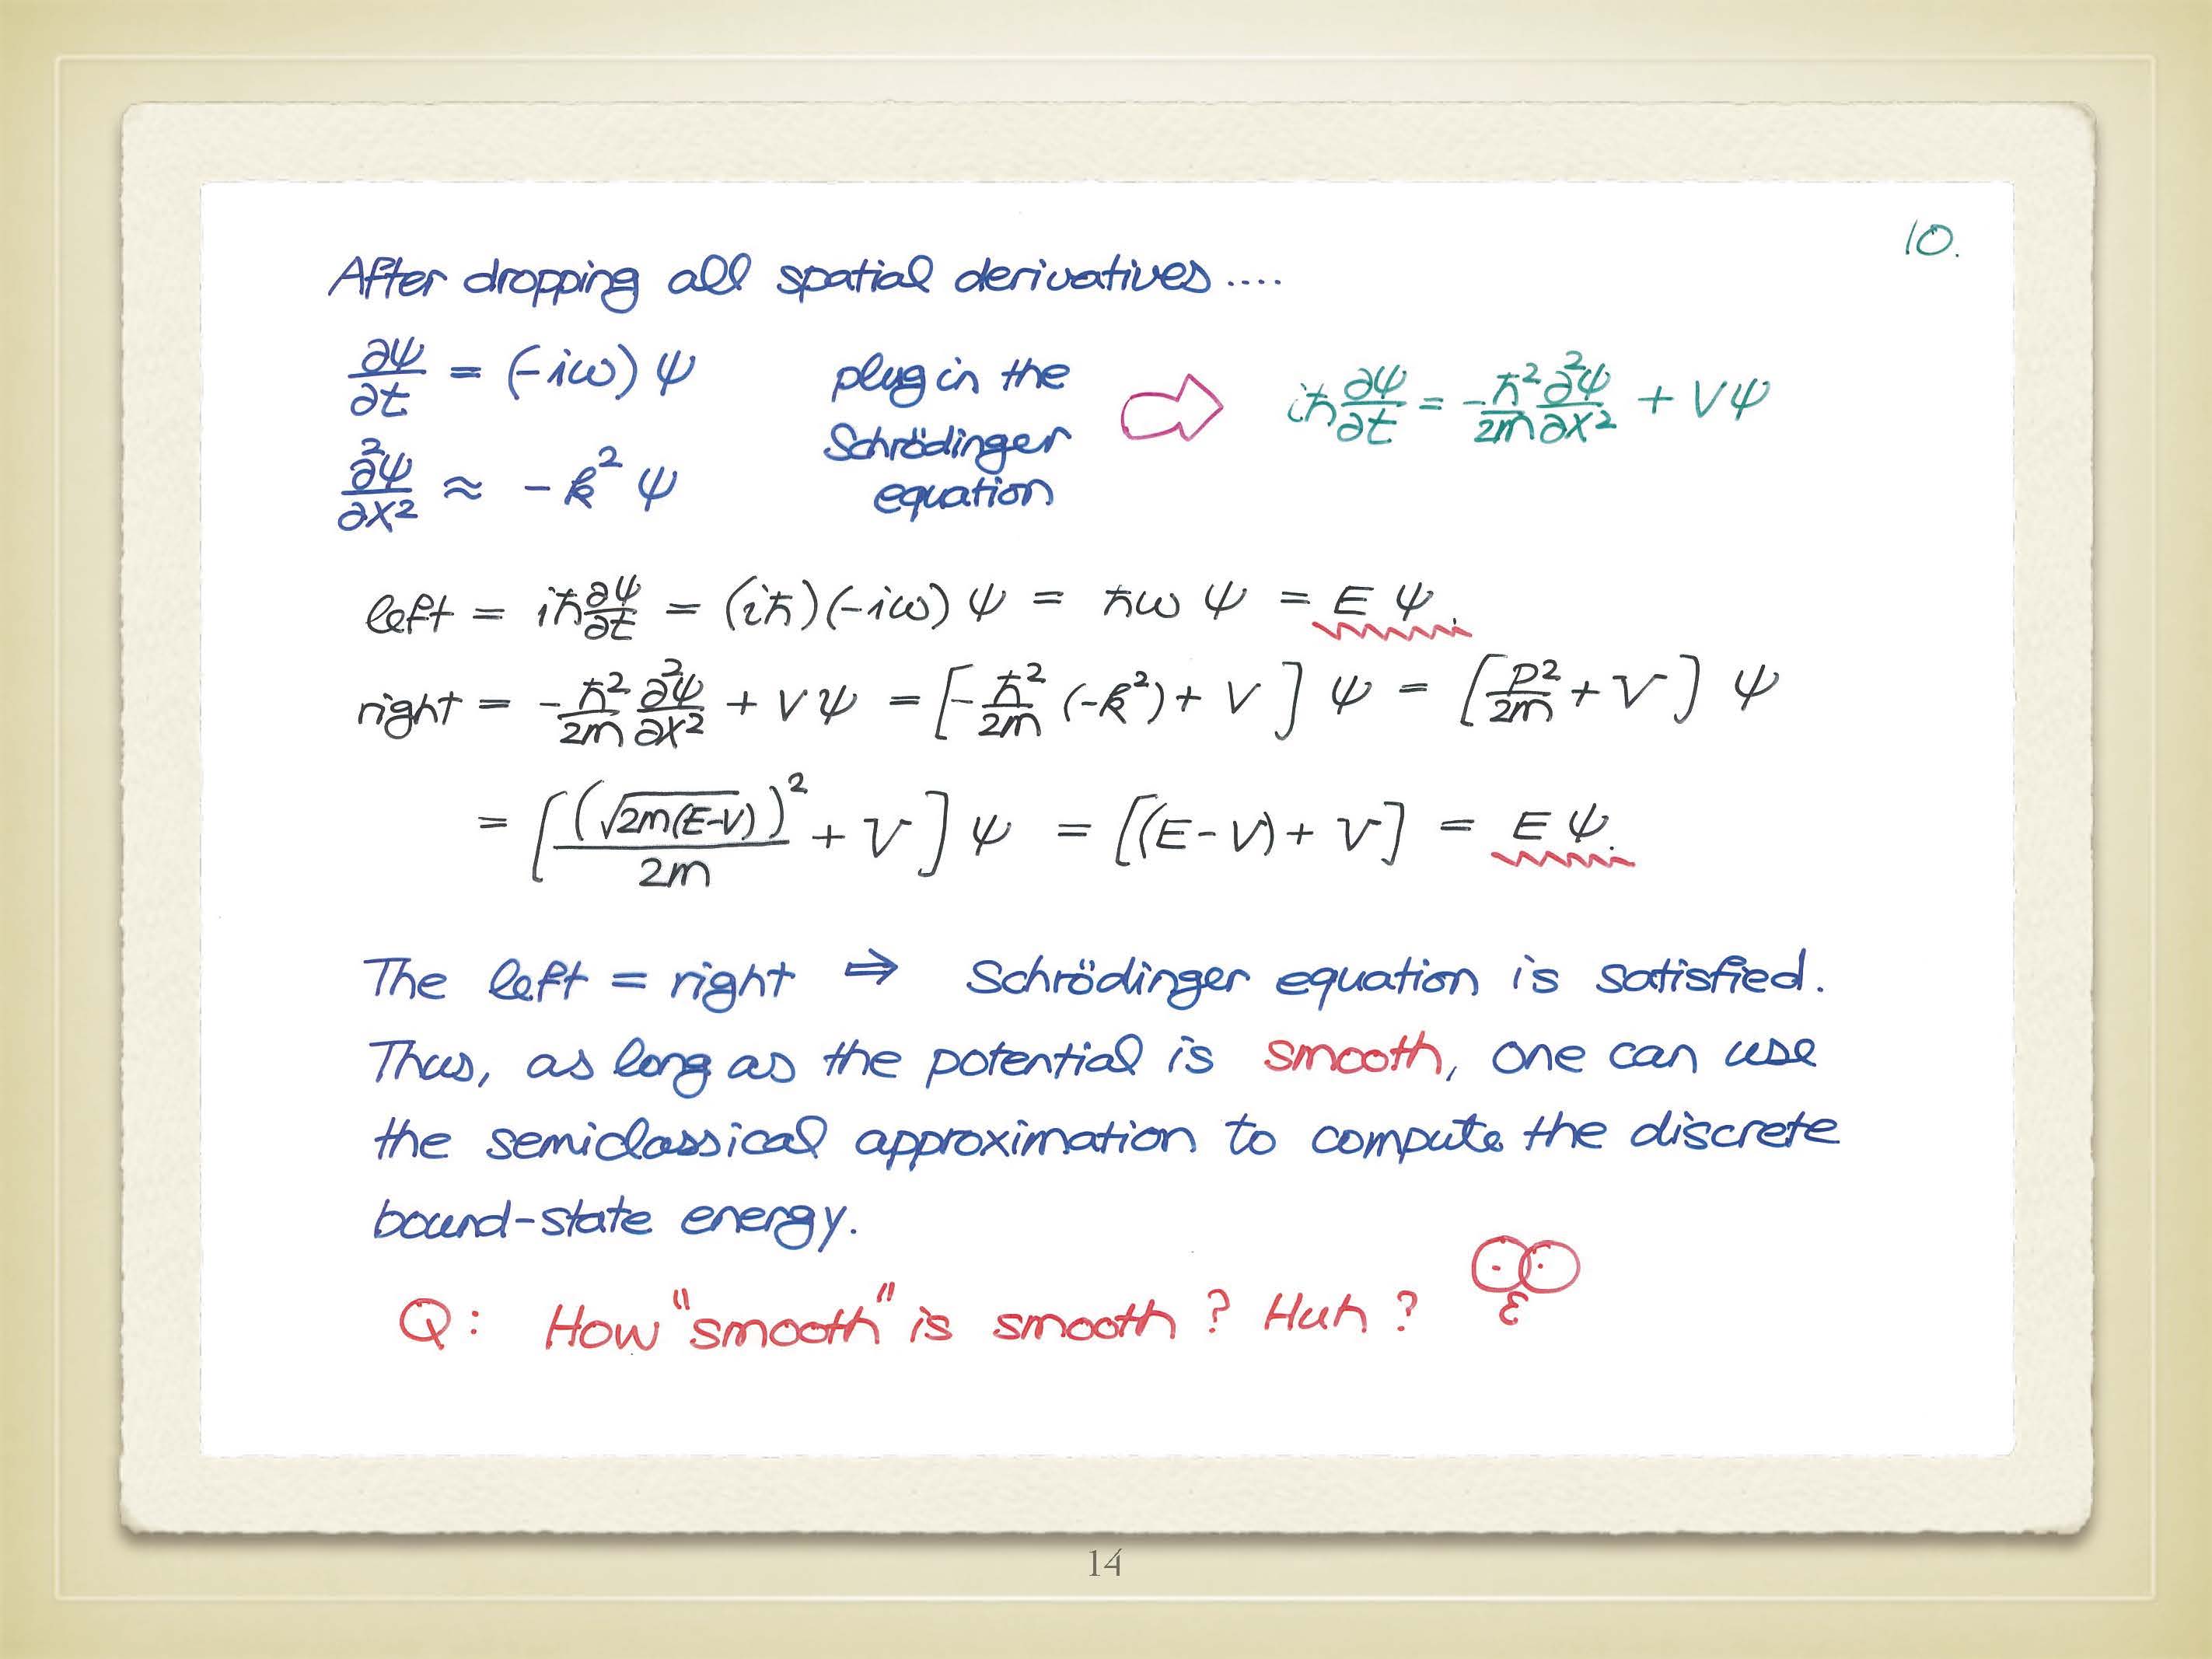 10.
After dropping all spatial derivatives....
∂ψ/∂t = (-iω) ψ
∂²ψ/∂x² ≈ -k² ψ
plug in the
Schrödinger
equation
iħ ∂ψ/∂t = -ħ²/2m ∂²ψ/∂x² + Vψ
left = iħ ∂ψ/∂t = (iħ)(-iω) ψ = ħω ψ = E ψ.
right = -ħ²/2m ∂²ψ/∂x² + Vψ = [-ħ²/2m (-k²) + V] ψ = [p²/2m + V] ψ
= [(√2m(E-V))²/2m + V] ψ = [(E-V) + V] = E ψ.
The left = right ⇒ Schrödinger equation is satisfied.
Thus, as long as the potential is smooth, one can use
the semiclassical approximation to compute the discrete
bound-state energy.
Q: How "smooth" is smooth? Huh?
14